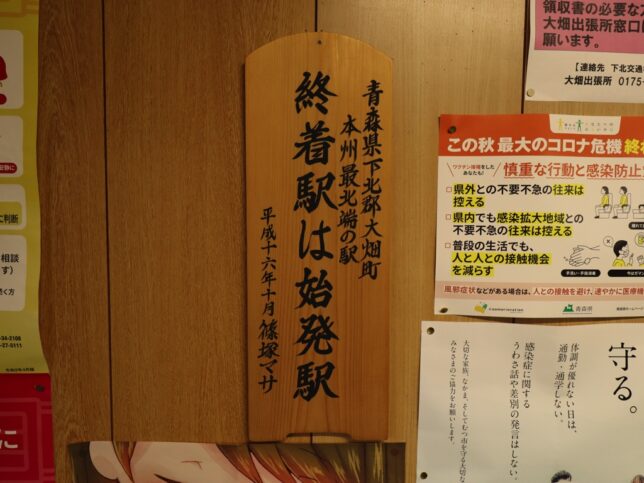 青森県下北郡大畑町
本州最北端の駅
終着駅は始発駅
平成十六年十月 篠塚マサ
領収書の必要な
大畑出張所窓口
願います。
【連絡先 下北交通
大畑出張所 0175-
この秋 最大のコロナ危機
ワクチン接種をした
あなたも!
慎重な行動と感染防止
□県外との不要不急の往来は
控える
□県内でも感染拡大地域との
不要不急の往来は控える
□普段の生活でも、
人と人との接触機会
を減らす
手洗い・手指消毒
風邪症状などがある場合は、人との接触を避け、速やかに医療機
青森県
守る。
体調が優れない日は、
通勤・通学しない。
感染症に関する
うわさ話や差別の発言はしない。
大切な家族、なかま、そしてむつ市を守る大切な
みなさまのご協力をお願いします。
に判断
相談
す)
-34-2108
-27-5111
に